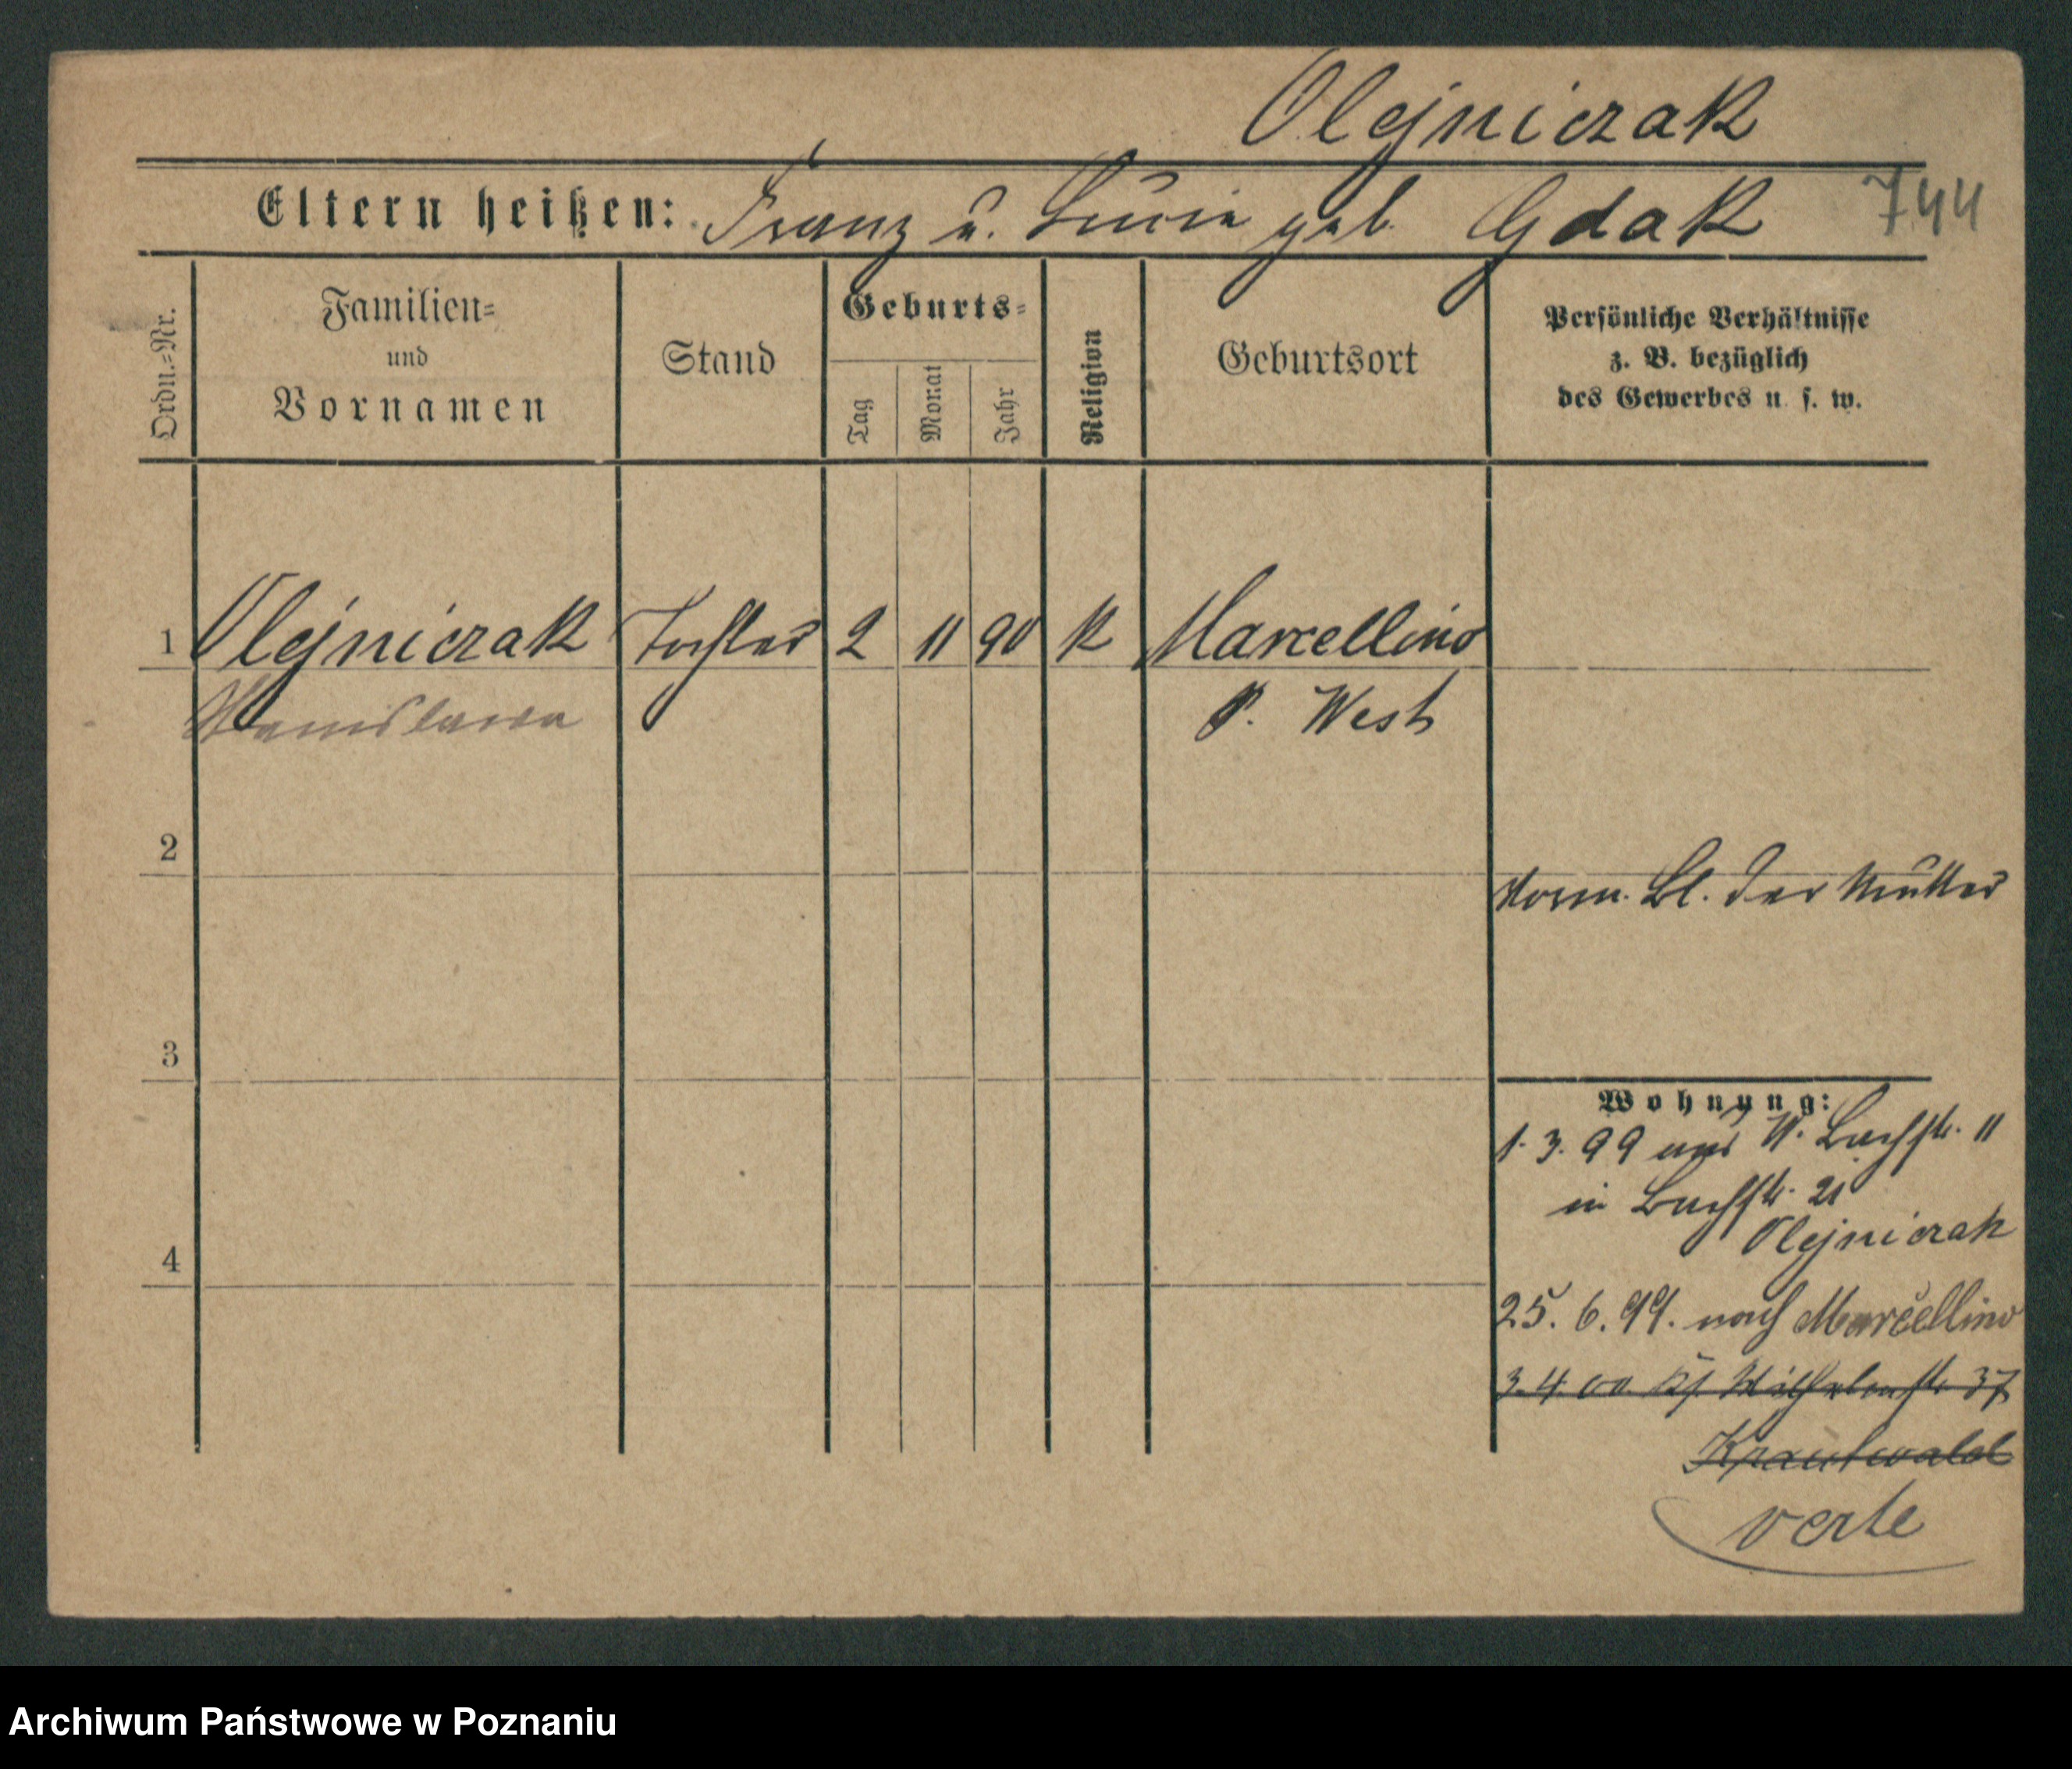 Olejniczak
Eltern heißen: Franz u. Lucia geb. Gdak 744
Ordn.-Nr.
Familien-
und
Vornamen
Stand
Geburts-
Tag
Monat
Jahr
Religion
Geburtsort
Persönliche Verhältnisse
z. B. bezüglich
des Gewerbes u. s. w.
1 Olejniczak Tochter 2 11 90 k Marcellino
Stanislawa P. West
2
vorm. Bl. der Mutter
3
Wohnung:
1. 3. 99 aus W. Buchstr. 11
in Buchstr. 21
Olejniczak
4
25. 6. 99. nach Marcellino
3. 4. 00 Wilhelmstr. 37
Krautwald
verte
Archiwum Państwowe w Poznaniu